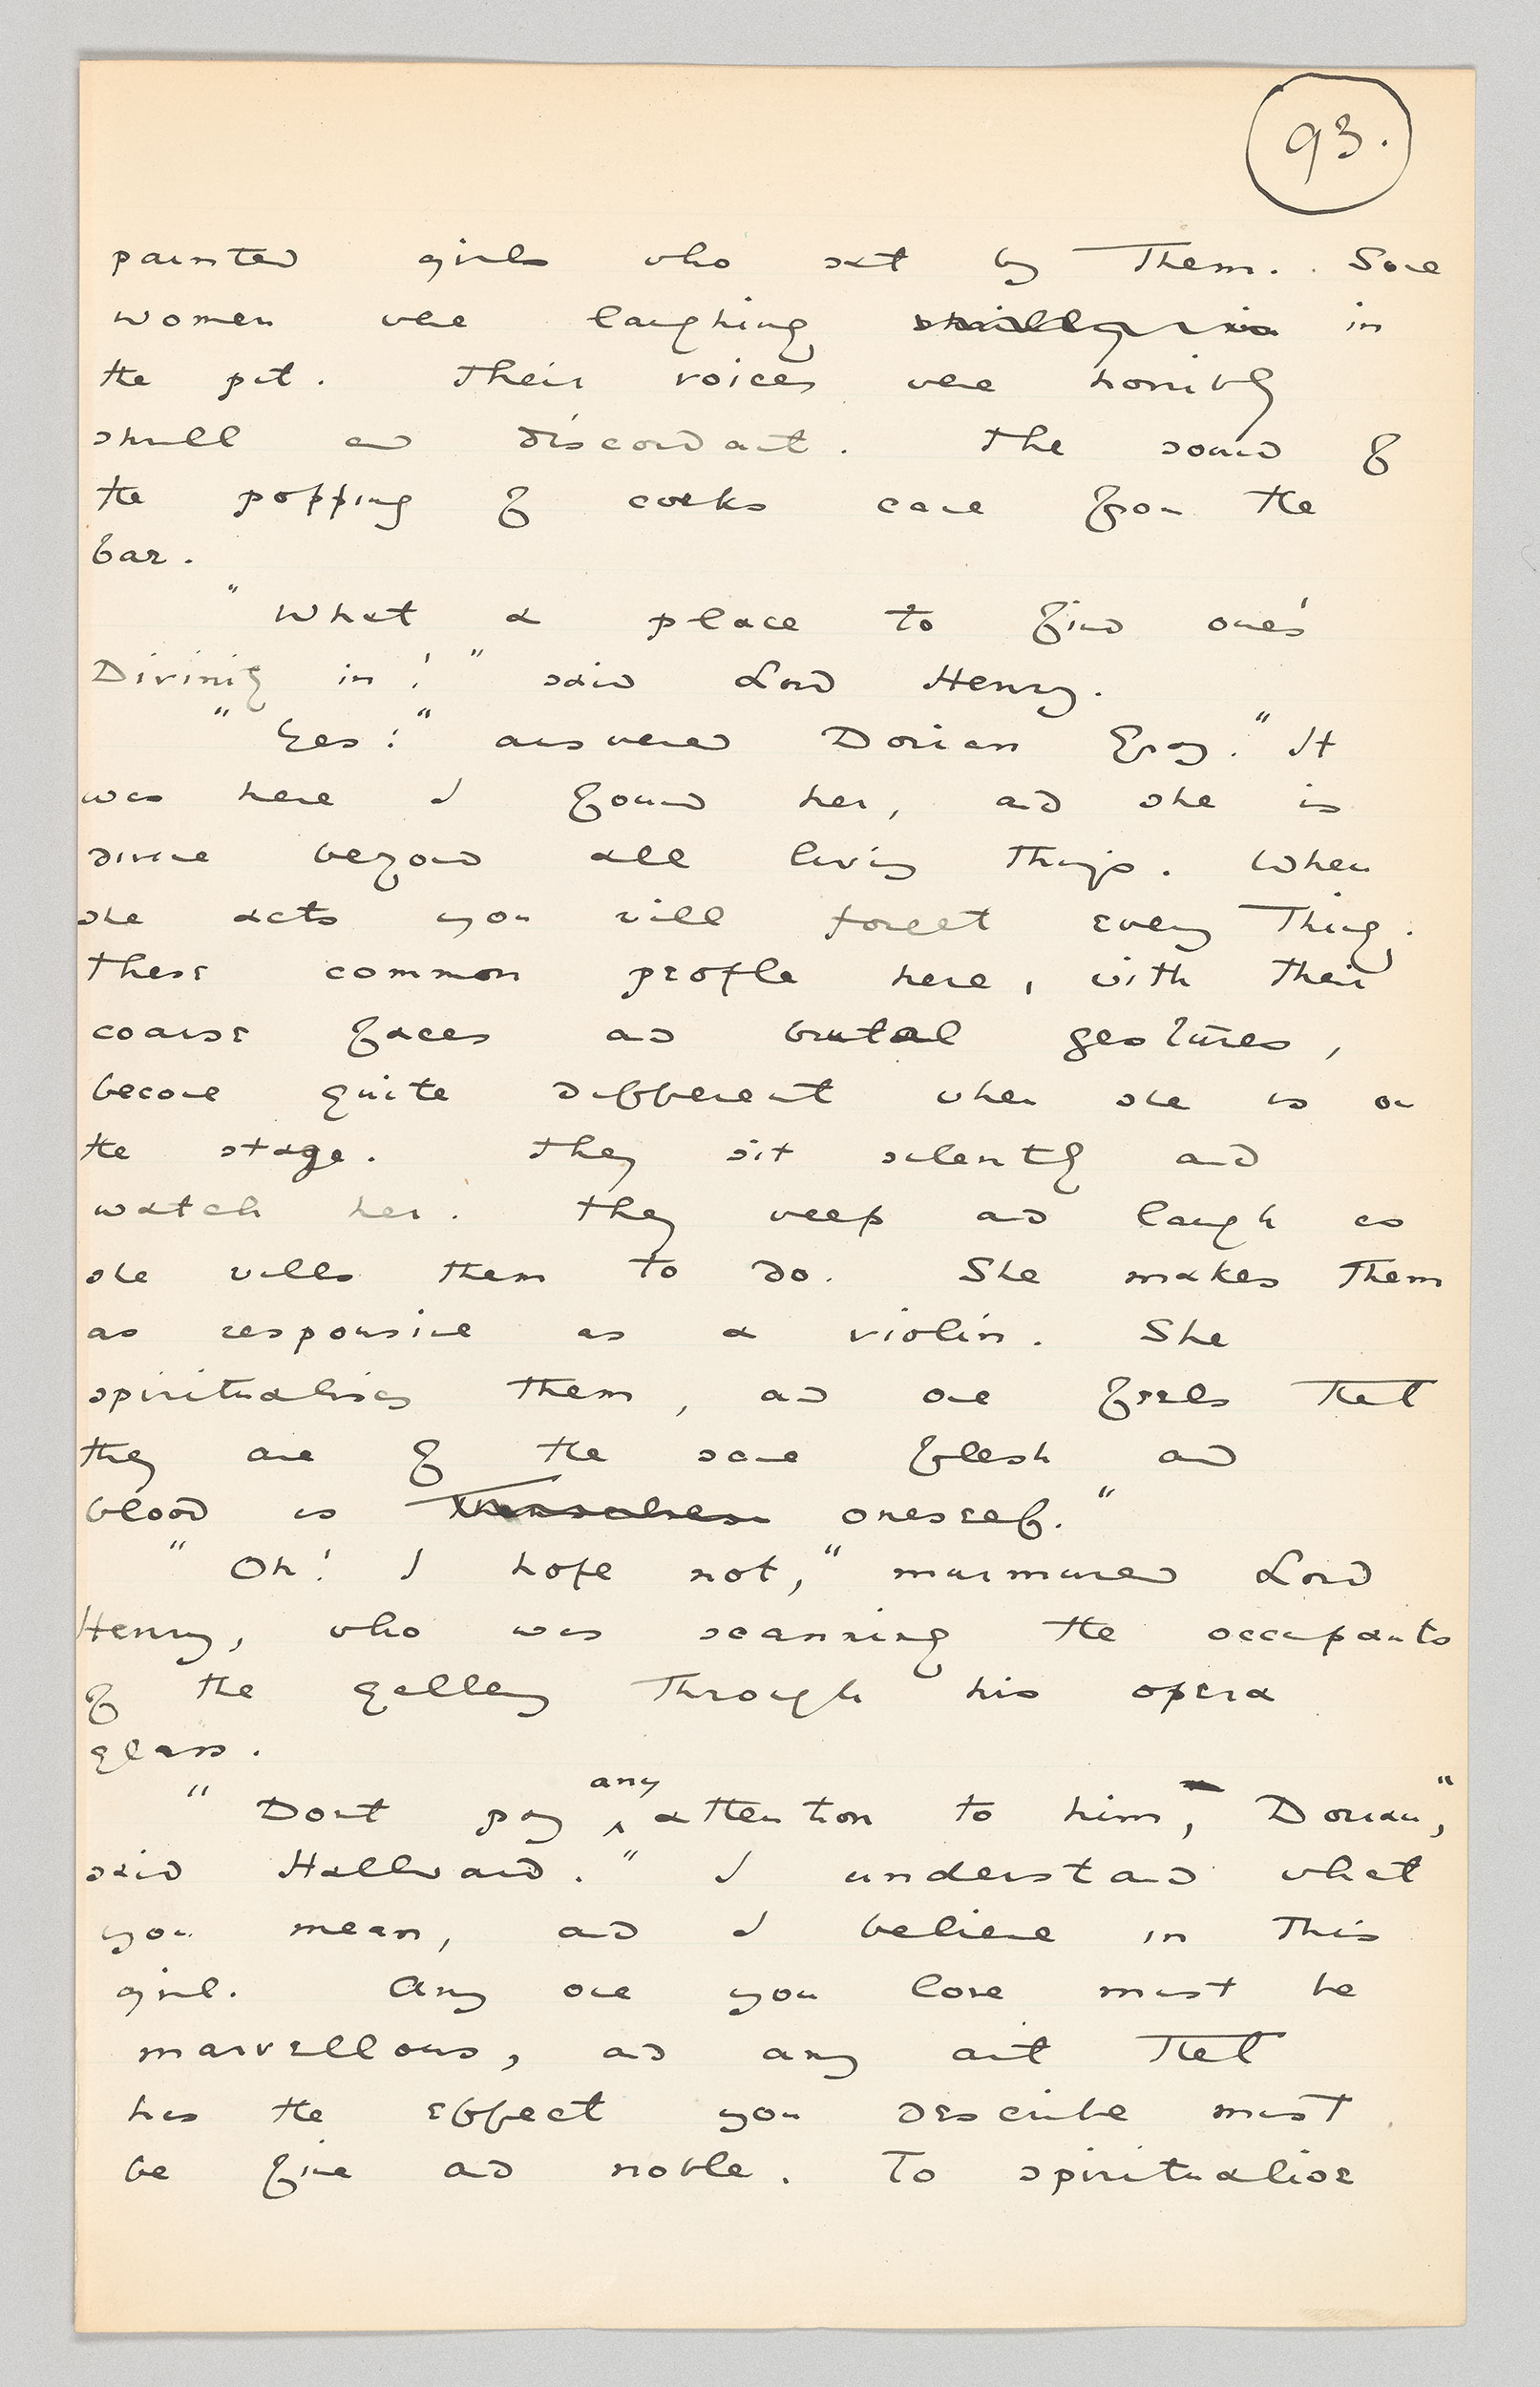 93.
painted girls who sat by them. Some
women were laughing shrilly in
the pit. Their voices were horribly
shrill and discordant. The sound of
the popping of corks came from the
bar.
"What a place to find one's
Divinity in!" said Lord Henry.
"Yes!" answered Dorian Gray. "It
was here I found her, and she is
divine beyond all living things. When
she acts you will forget every thing.
These common people here, with their
coarse faces and brutal gestures,
become quite different when she is on
the stage. They sit silently and
watch her. They weep and laugh as
she wills them to do. She makes them
as responsive as a violin. She
spiritualises them, and one feels that
they are of the same flesh and
blood as themselves oneself."
"Oh! I hope not," murmured Lord
Henry, who was scanning the occupants
of the gallery through his opera
glass.
"Dont pay any attention to him, Dorian,"
said Hallward. "I understand what
you mean, and I believe in this
girl. Any one you love must be
marvellous, and any art that
has the effect you describe must
be fine and noble. To spiritualise